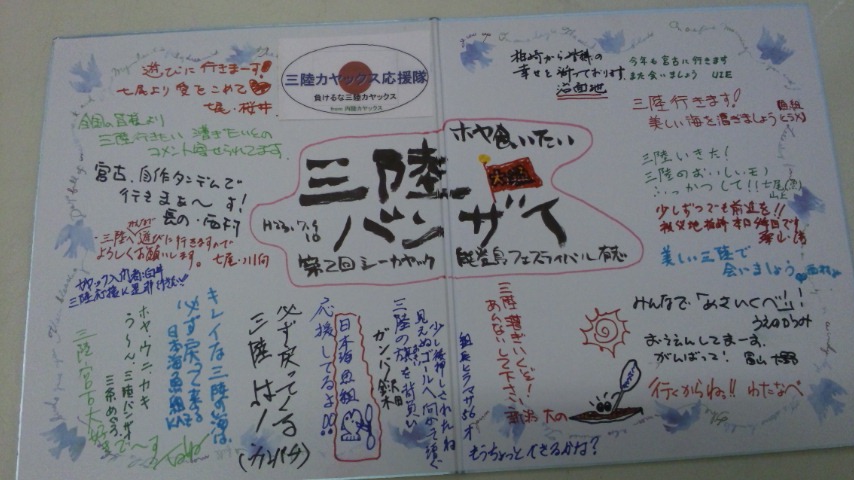 遊びに行きまーす!
七尾より愛をこめて
七尾・桜井
三陸カヤックス応援隊
負けるな三陸カヤックス
from 内陸カヤックス
三陸行きたい 漕ぎたいとの
コメント寄せられてます。
宮古、自作タンデムで
行きまぁ~す!
長の・西村
みんなで
・三陸へ遊びに行きますので
よろしくお願いします。七尾・川向
ホヤ食いたい
三陸
バンザイ
大漁
H23.7.9
10
第2回シーカヤック
能登島フェスティバル 有志
皆様の
幸せを祈っております。
今年も宮古に行きます
また会いましょう UZE
三陸行きます!
美しい海を漕ぎましょう
三陸いきた!
三陸のおいしいモノ
ふっかつして!!
少しずつでも前進を!!
美しい三陸で
会いましょう
みんなで「めさいくべ」!!
うえのかつみ
おうえんしてまーす。
がんばって!
行くからねっ!! わたなべ
三陸 漕ぎいくぞー!
あんないして下さい
少し後押しされたね
見えぬゴールへ向かって頑ぐ
三陸の旗を背負い
ガンバレ 沢田
鈴木
日本海魚組
応援してるよ!!
必ず戻ってくる
三陸は!
キレイな三陸の海は
必ず戻って来る
日本海魚組 KAZ
ホヤウニカキ
う~ん、三陸バンザイ
三陸宮古大好きで~す
もうちょっとできるかな?